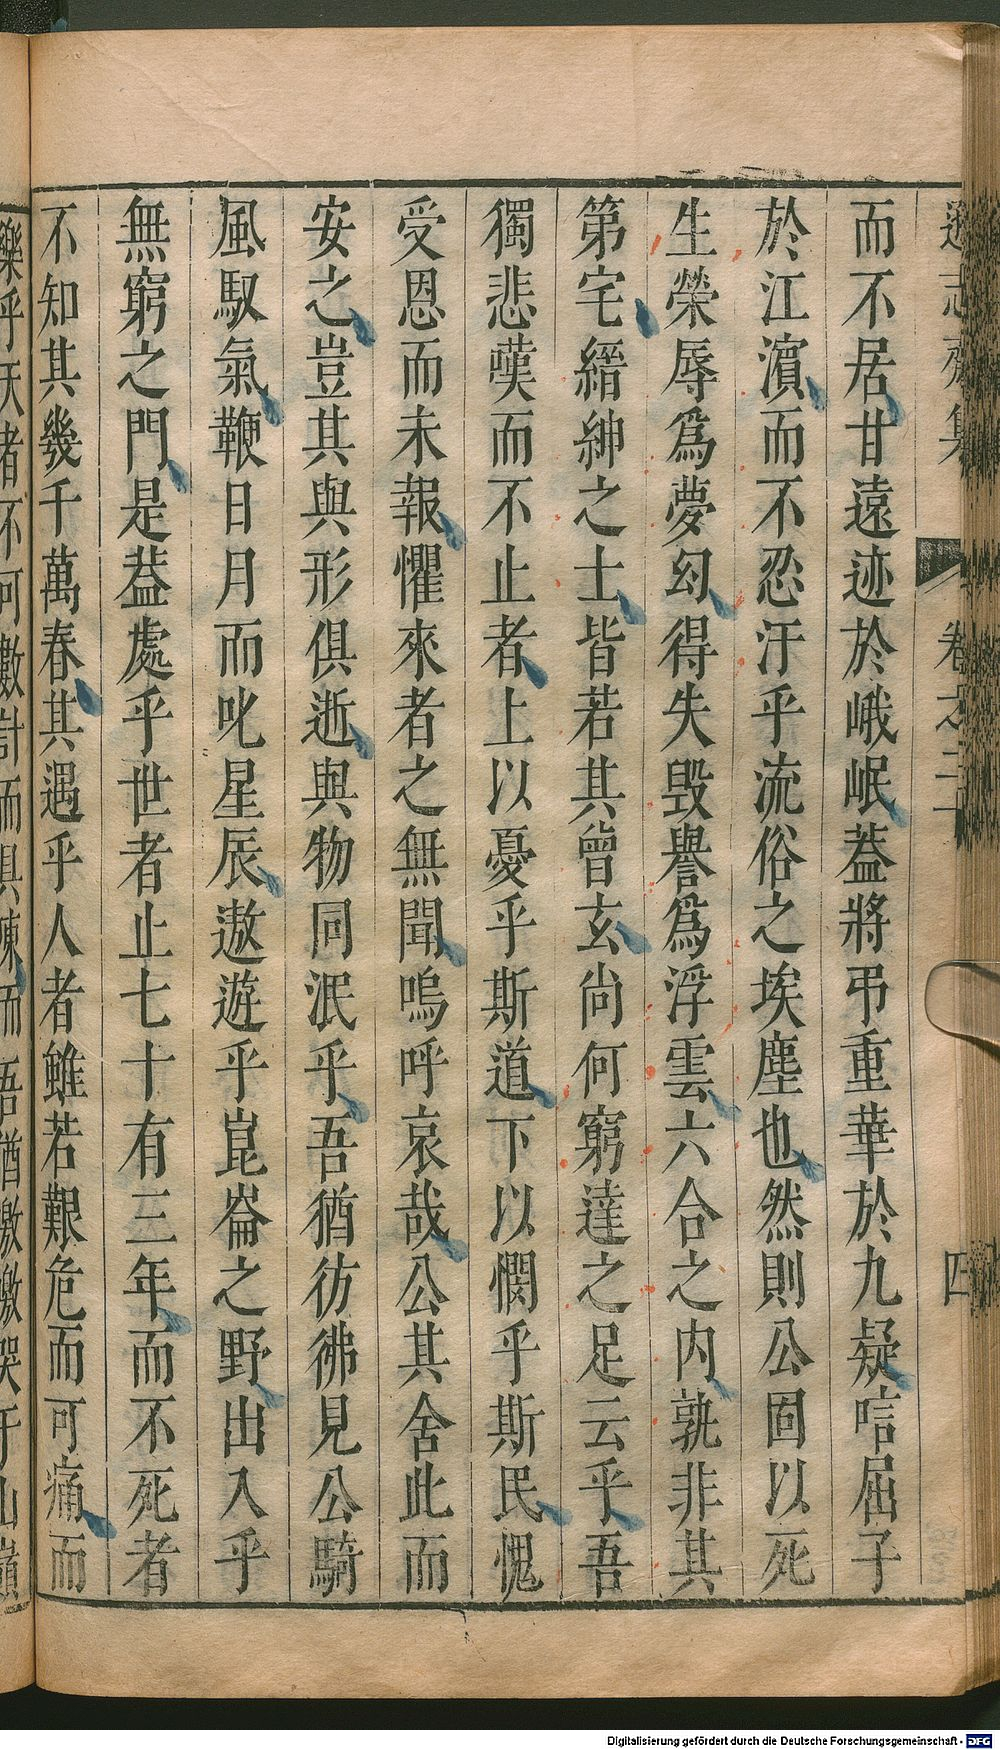 遜志齋集 卷之二十 四
而不居甘遠迹於峨岷葢將弔重華於九疑唁屈子
於江濱而不忍汙乎流俗之埃塵也然則公固以死
生榮辱爲夢幻得失毀譽爲浮雲六合之內孰非其
第宅縉紳之士皆若其曾玄尚何窮達之足云乎吾
獨悲嘆而不止者上以憂乎斯道下以憫乎斯民愧
受恩而未報懼來者之無聞嗚呼哀哉公其舍此而
安之豈其與形俱逝與物同泯乎吾猶彷彿見公騎
風馭氣鞭日月而叱星辰遨遊乎崑崙之野出入乎
無窮之門是葢處乎世者止七十有三年而不死者
不知其幾千萬春其遇乎人者雖若艱危而可痛而
樂乎天者不可數計而俱陳而吾猶激激哭于山巔
Digitalisierung gefördert durch die Deutsche Forschungsgemeinschaft - DFG